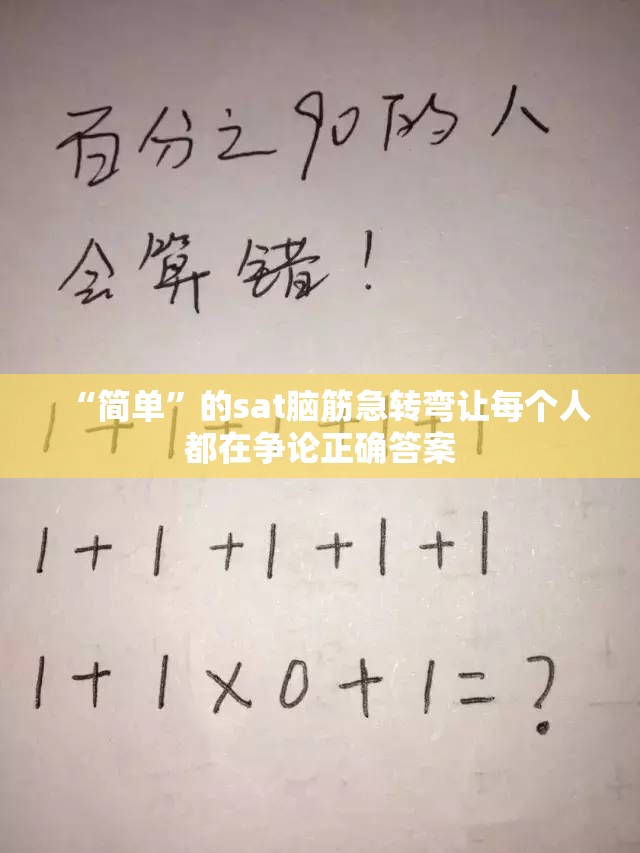 百分之90的人
会算错！
“简单”的sat脑筋急转弯让每个人
都在争论正确答案
1+1+1+1+1
1+1×0+1=?